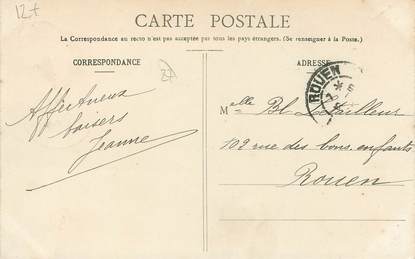 12+
CARTE POSTALE
La Correspondance au recto n'est pas acceptée par tous les pays étrangers. (Se renseigner à la Poste.)
CORRESPONDANCE
ADRESSE
ROUEN
Affectueux
baisers
Jeanne
Melle Bl. Letailleur
102 rue des bons enfants
Rouen